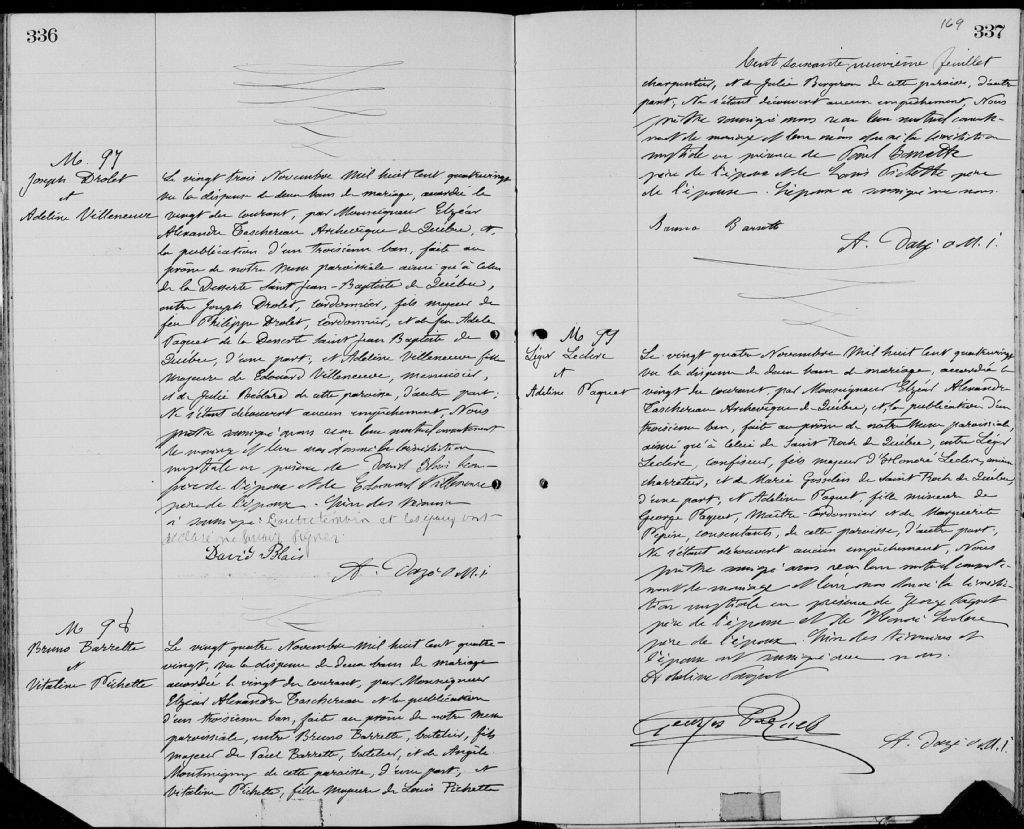 336
M. 97
Joseph Drolet
et
Adeline Villeneuve
Le vingt trois Novembre Mil huit cent quatrevingt
vu la dispense de deux bans de mariage, accordée le
vingt du courant, par Monseigneur Elzéar
Alexandre Taschereau Archevêque de Québec, et
la publication d'un troisième ban, faite au
prône de notre Messe paroissiale ainsi qu'à celui
de la Desserte Saint Jean-Baptiste de Québec,
entre Joseph Drolet, Cordonnier, fils majeur de
feu Philippe Drolet, Cordonnier, et de feu Adèle
Paquet de la Desserte Saint Jean Baptiste de
Québec, d'une part; et Adeline Villeneuve fille
majeure de Edouard Villeneuve, menuisier,
et de Julie Bédard de cette paroisse, d'autre part;
Ne s'étant découvert aucun empêchement, Nous
prêtre soussigné avons reçu leur mutuel consentement
de mariage et leur avons donné la bénédiction
nuptiale en présence de David Blais beau-
père de l'époux et de Edouard Villeneuve
père de l'épouse. L'un des témoins
a soussigné. L'autre témoin et les époux ont
déclaré ne savoir signer.
David Blais
A. Dazé O.M.I.
M 98
Bruno Barrette
et
Vitaline Pichette
Le vingt quatre Novembre Mil huit cent quatre-
vingt, vu la dispense de deux bans de mariage
accordée le vingt du courant, par Monseigneur
Elzéar Alexandre Taschereau et la publication
d'un troisième ban, faite au prône de notre Messe
paroissiale, entre Bruno Barrette, batelier, fils
majeur de Paul Barrette, batelier, et de Angèle
Montmigny de cette paroisse, d'une part, et
Vitaline Pichette, fille Majeure de Louis Pichette
169
337
Cent soixante neuvième feuillet
charpentier, et de Julie Bergeron de cette paroisse, d'autre
part; Ne s'étant découvert aucun empêchement, Nous
prêtre soussigné avons reçu leur mutuel consente-
ment de mariage et leur avons donné la bénédiction
nuptiale en présence de Paul Barrette
père de l'époux et de Louis Pichette père
de l'épouse. L'époux a soussigné avec nous.
Bruno Barrette
A. Dazé O.M.I.
M 99
Léger Leclerc
et
Adeline Paquet
Le vingt quatre Novembre Mil huit cent quatrevingt
vu la dispense de deux bans de mariage, accordée le
vingt du courant par Monseigneur Elzéar Alexandre
Taschereau Archevêque de Québec, et la publication d'un
troisième ban, faite au prône de notre Messe paroissiale,
ainsi qu'à celui de Saint Roch de Québec, entre Léger
Leclerc, confiseur, fils majeur d'Honoré Leclerc, ancien
charretier, et de Marie Gosselin de Saint Roch de Québec,
d'une part, et Adeline Paquet, fille mineure de
George Paquet, Maître-Cordonnier et de Marguerite
Pepin, consentants, de cette paroisse, d'autre part,
Ne s'étant découvert aucun empêchement, Nous
prêtre soussigné avons reçu leur mutuel consente-
ment de mariage et leur avons donné la bénédic-
tion nuptiale en présence de George Paquet
père de l'épouse et de Honoré Leclerc
père de l'époux. L'un des témoins et
l'épouse ont soussigné avec nous.
Adeline Paquet
Georges Paquet
A. Dazé O.M.I.